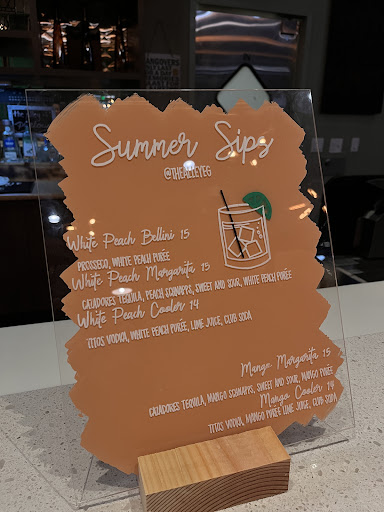 Summer Sips
@THEALLEYEG
White Peach Bellini 15
PROSSECO, WHITE PEACH PURÉE
White Peach Margarita 15
CAZADORES TEQUILA, PEACH SCHNAPPS, SWEET AND SOUR, WHITE PEACH PURÉE
White Peach Cooler 14
TITOS VODKA, WHITE PEACH PURÉE, LIME JUICE, CLUB SODA
Mango Margarita 15
CAZADORES TEQUILA, MANGO SCHNAPPS, SWEET AND SOUR, MANGO PURÉE
Mango Cooler 14
TITOS VODKA, MANGO PURÉE LIME JUICE, CLUB SODA